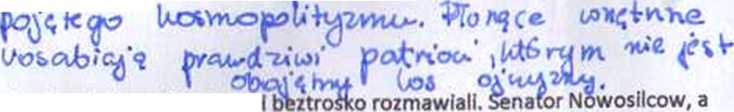 pojętego kosmopolityzmu. Płonące wnętrze
uosabiają prawdziwi patrioci, którym nie jest
obojętny los ojczyzny.
i beztrosko rozmawiali. Senator Nowosilcow, a